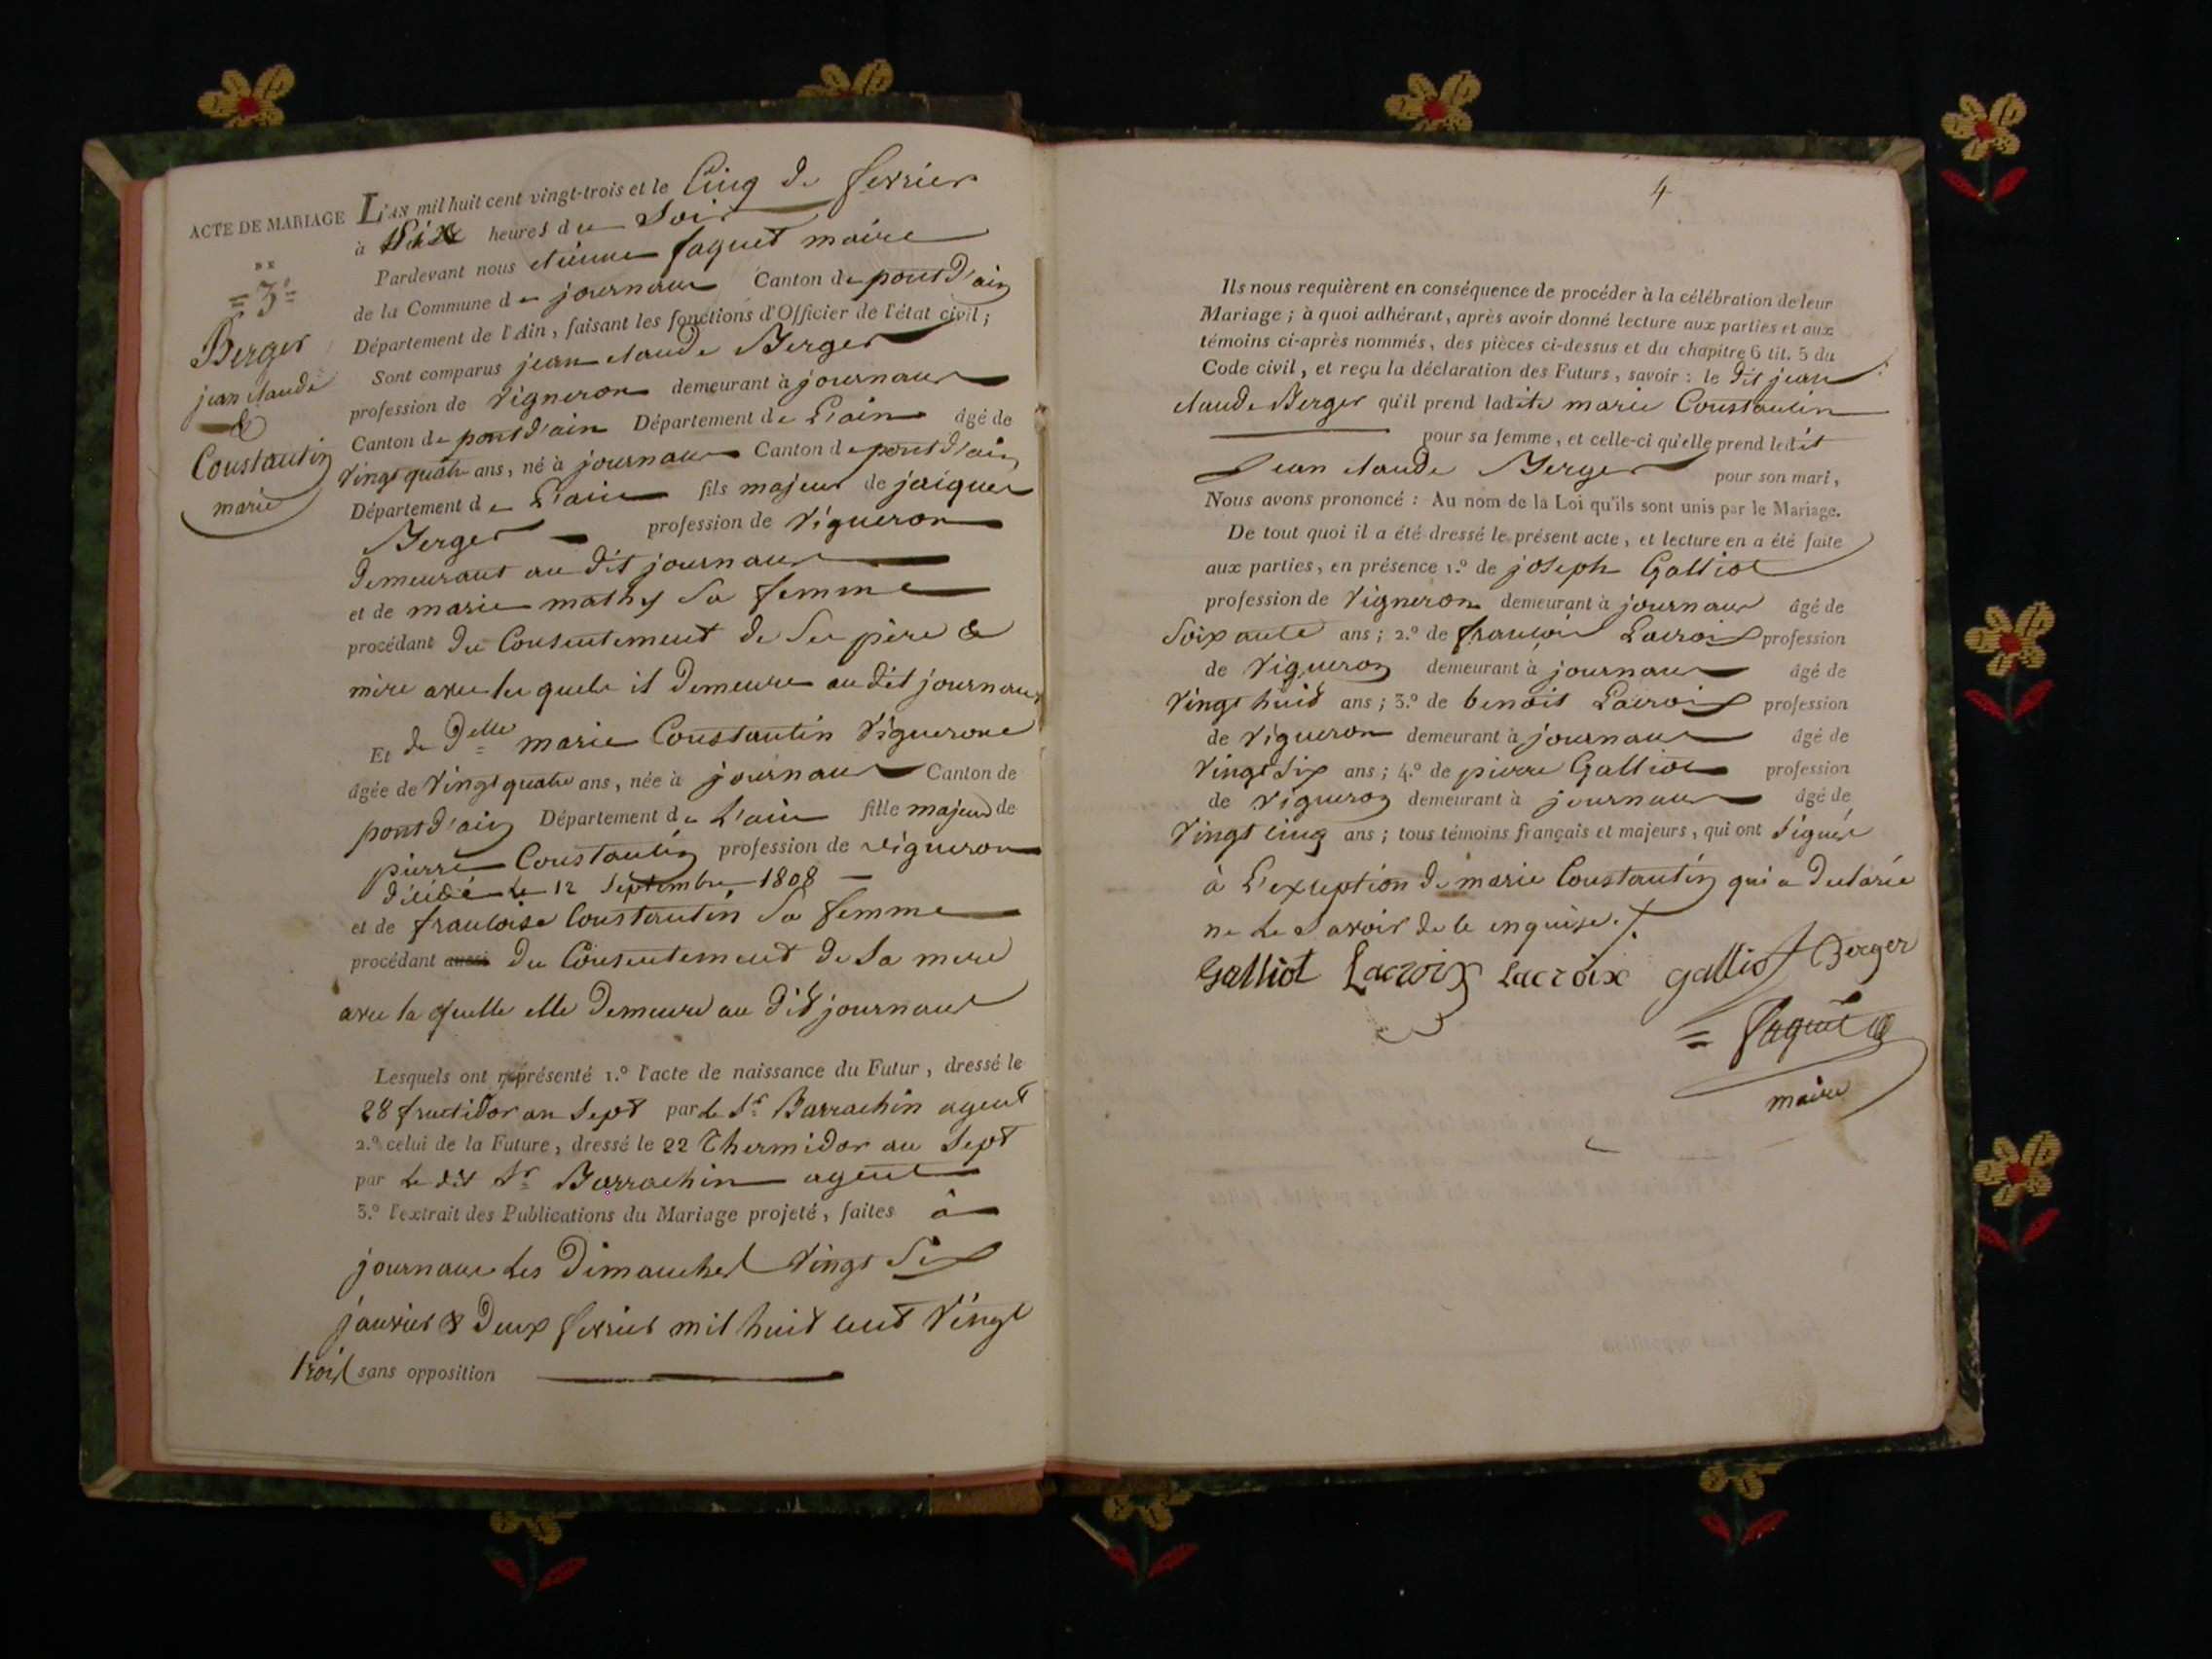 ACTE DE MARIAGE
DE
= 3e =
Berger
jean claude
&
Constantin
marie
L'AN mil huit cent vingt-trois et le Cinq de fevrier
à Six heures du Soir
Pardevant nous etienne faguet maire
de la Commune de journans Canton de pont d'ain
Département de l'Ain, faisant les fonctions d'Officier de l'état civil;
Sont comparus jean claude Berger
profession de Vigneron demeurant à journans
Canton de pont d'ain Département de L'ain âgé de
Vingt quatre ans, né à journans Canton de pont d'ain
Département de L'ain fils majeur de jaiques
Berger profession de Vigneron
demeurant au dit journans
et de marie mathy Sa femme
procédant du Consentement de Ses père &
mère avec les quels il demeure au dit journans
Et de Delle marie Constantin Vignerone
âgée de Vingt quatre ans, née à journans Canton de
pont d'ain Département de L'ain fille majeure de
pierre Constantin profession de vigneron
décédé Le 12 Septembre 1808
et de francoise Constantin Sa femme
procédant aussi du Consentement de Sa mere
avec la quelle elle demeure au dit journans
Lesquels ont représenté 1.º l'acte de naissance du Futur, dressé le
28 fructidor an Sept par le Sr Barrachin agent
2.º celui de la Future, dressé le 22 Thermidor an Sept
par Le dit Sr Barrachin agent
3.º l'extrait des Publications du Mariage projeté, faites à
journans Les Dimanches Vingt Six
janvier & Deux fevrier mil huit cent Vingt
trois sans opposition
4
Ils nous requièrent en conséquence de procéder à la célébration de leur
Mariage; à quoi adhérant, après avoir donné lecture aux parties et aux
témoins ci-après nommés, des pièces ci-dessus et du chapitre 6 tit. 5 du
Code civil, et reçu la déclaration des Futurs, savoir: le dit jean
claude Berger qu'il prend ladite marie Constantin
pour sa femme, et celle-ci qu'elle prend ledit
Jean claude Berger pour son mari,
Nous avons prononcé: Au nom de la Loi qu'ils sont unis par le Mariage.
De tout quoi il a été dressé le présent acte, et lecture en a été faite
aux parties, en présence 1.º de joseph Galliot
profession de Vigneron demeurant à journans âgé de
Soixante ans; 2.º de francois Lacroix profession
de Vigneron demeurant à journans âgé de
Vingt huit ans; 3.º de benoit Lacroix profession
de Vigneron demeurant à journans âgé de
Vingt Six ans; 4.º de pierre Galliot profession
de Vigneron demeurant à journans âgé de
Vingt cinq ans; tous témoins français et majeurs, qui ont Signés
à L'exception de marie Constantin qui a declarée
ne Le Savoir de ce enquise./.
Galliot Lacroix Lacroix galliot Berger
= faguet
maire